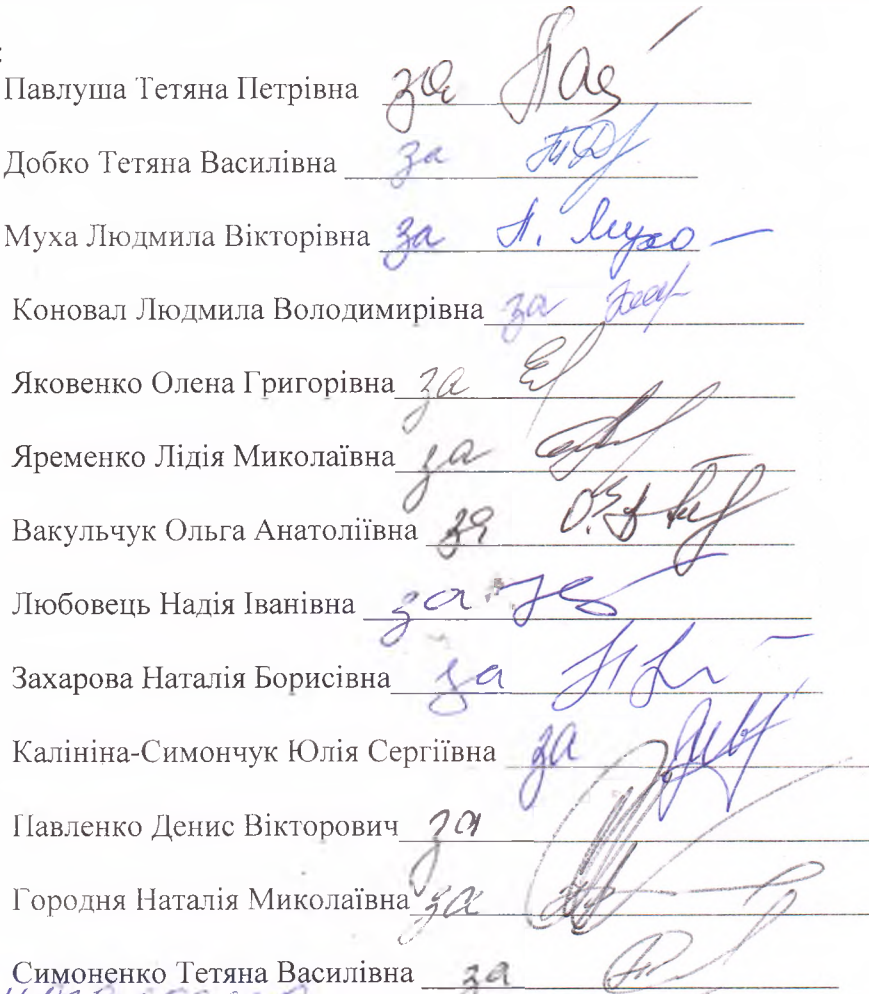 :
Павлуша Тетяна Петрівна за
Добко Тетяна Василівна за
Муха Людмила Вікторівна за Л. Муха
Коновал Людмила Володимирівна за
Яковенко Олена Григорівна за
Яременко Лідія Миколаївна за
Вакульчук Ольга Анатоліївна за
Любовець Надія Іванівна за
Захарова Наталія Борисівна за
Калініна-Симончук Юлія Сергіївна за
Павленко Денис Вікторович за
Городня Наталія Миколаївна за
Симоненко Тетяна Василівна за